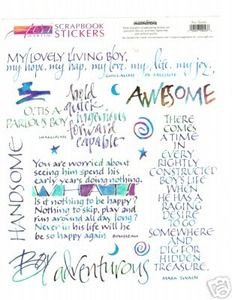 SCRAPBOOK
STICKERS
MY LOVELY LIVING BOY,
my hope, my hap, my love, my life, my joy.
bold
quick
ingenious
forward
capable
AWESOME
O, 'TIS A
PARLOUS BOY.
SHAKESPEARE
HANDSOME
THERE
COMES A
TIME IN
EVERY
RIGHTLY
CONSTRUCTED
BOY'S LIFE
WHEN
HE HAS A
RAGING
DESIRE
TO GO
SOMEWHERE
AND
DIG FOR
HIDDEN
TREASURE.
MARK TWAIN
You are worried about
seeing him spend his
early years doing nothing.
Is it nothing to be happy?
Nothing to skip, play and
run around all day long?
Never in his life will he
be so happy again
ROUSSEAU
Boy
adventurous